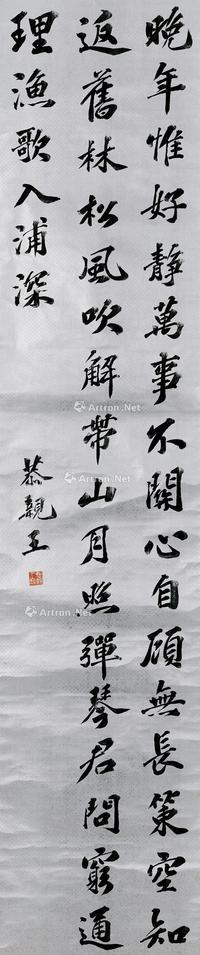 晚年惟好靜萬事不關心自顧無長策空知
返舊林松風吹解帶山月照彈琴君問窮通
理漁歌入浦深
恭親王
Artron.Net
Artron.Net
Artron.Net
Artron.Net